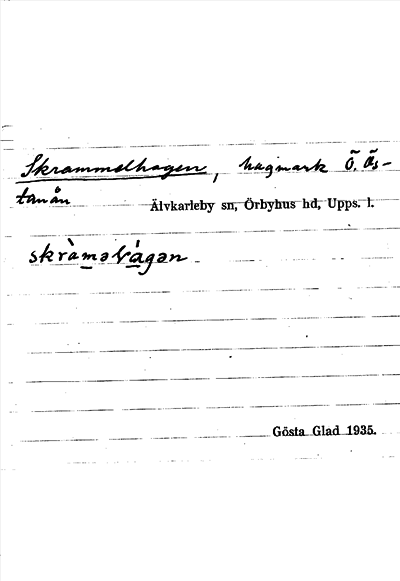 Skrammelhagen, hagmark Ö. Ös-
tanån
Älvkarleby sn, Örbyhus hd, Upps. l.
skràməlágən
Gösta Glad 1935.